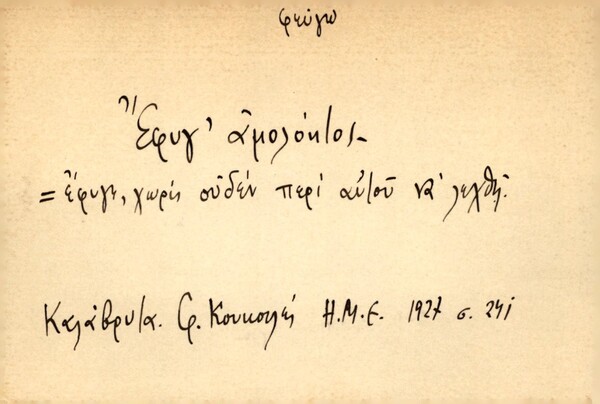 φεύγω
Ἔφυγ' ἀμολόητος
= ἔφυγε, χωρίς οὐδέν περί αὐτοῦ νά λεχθῇ.
Καλάβρυτα. Φ. Κουκουλές Η.Μ.Ε. 1927 σ. 241